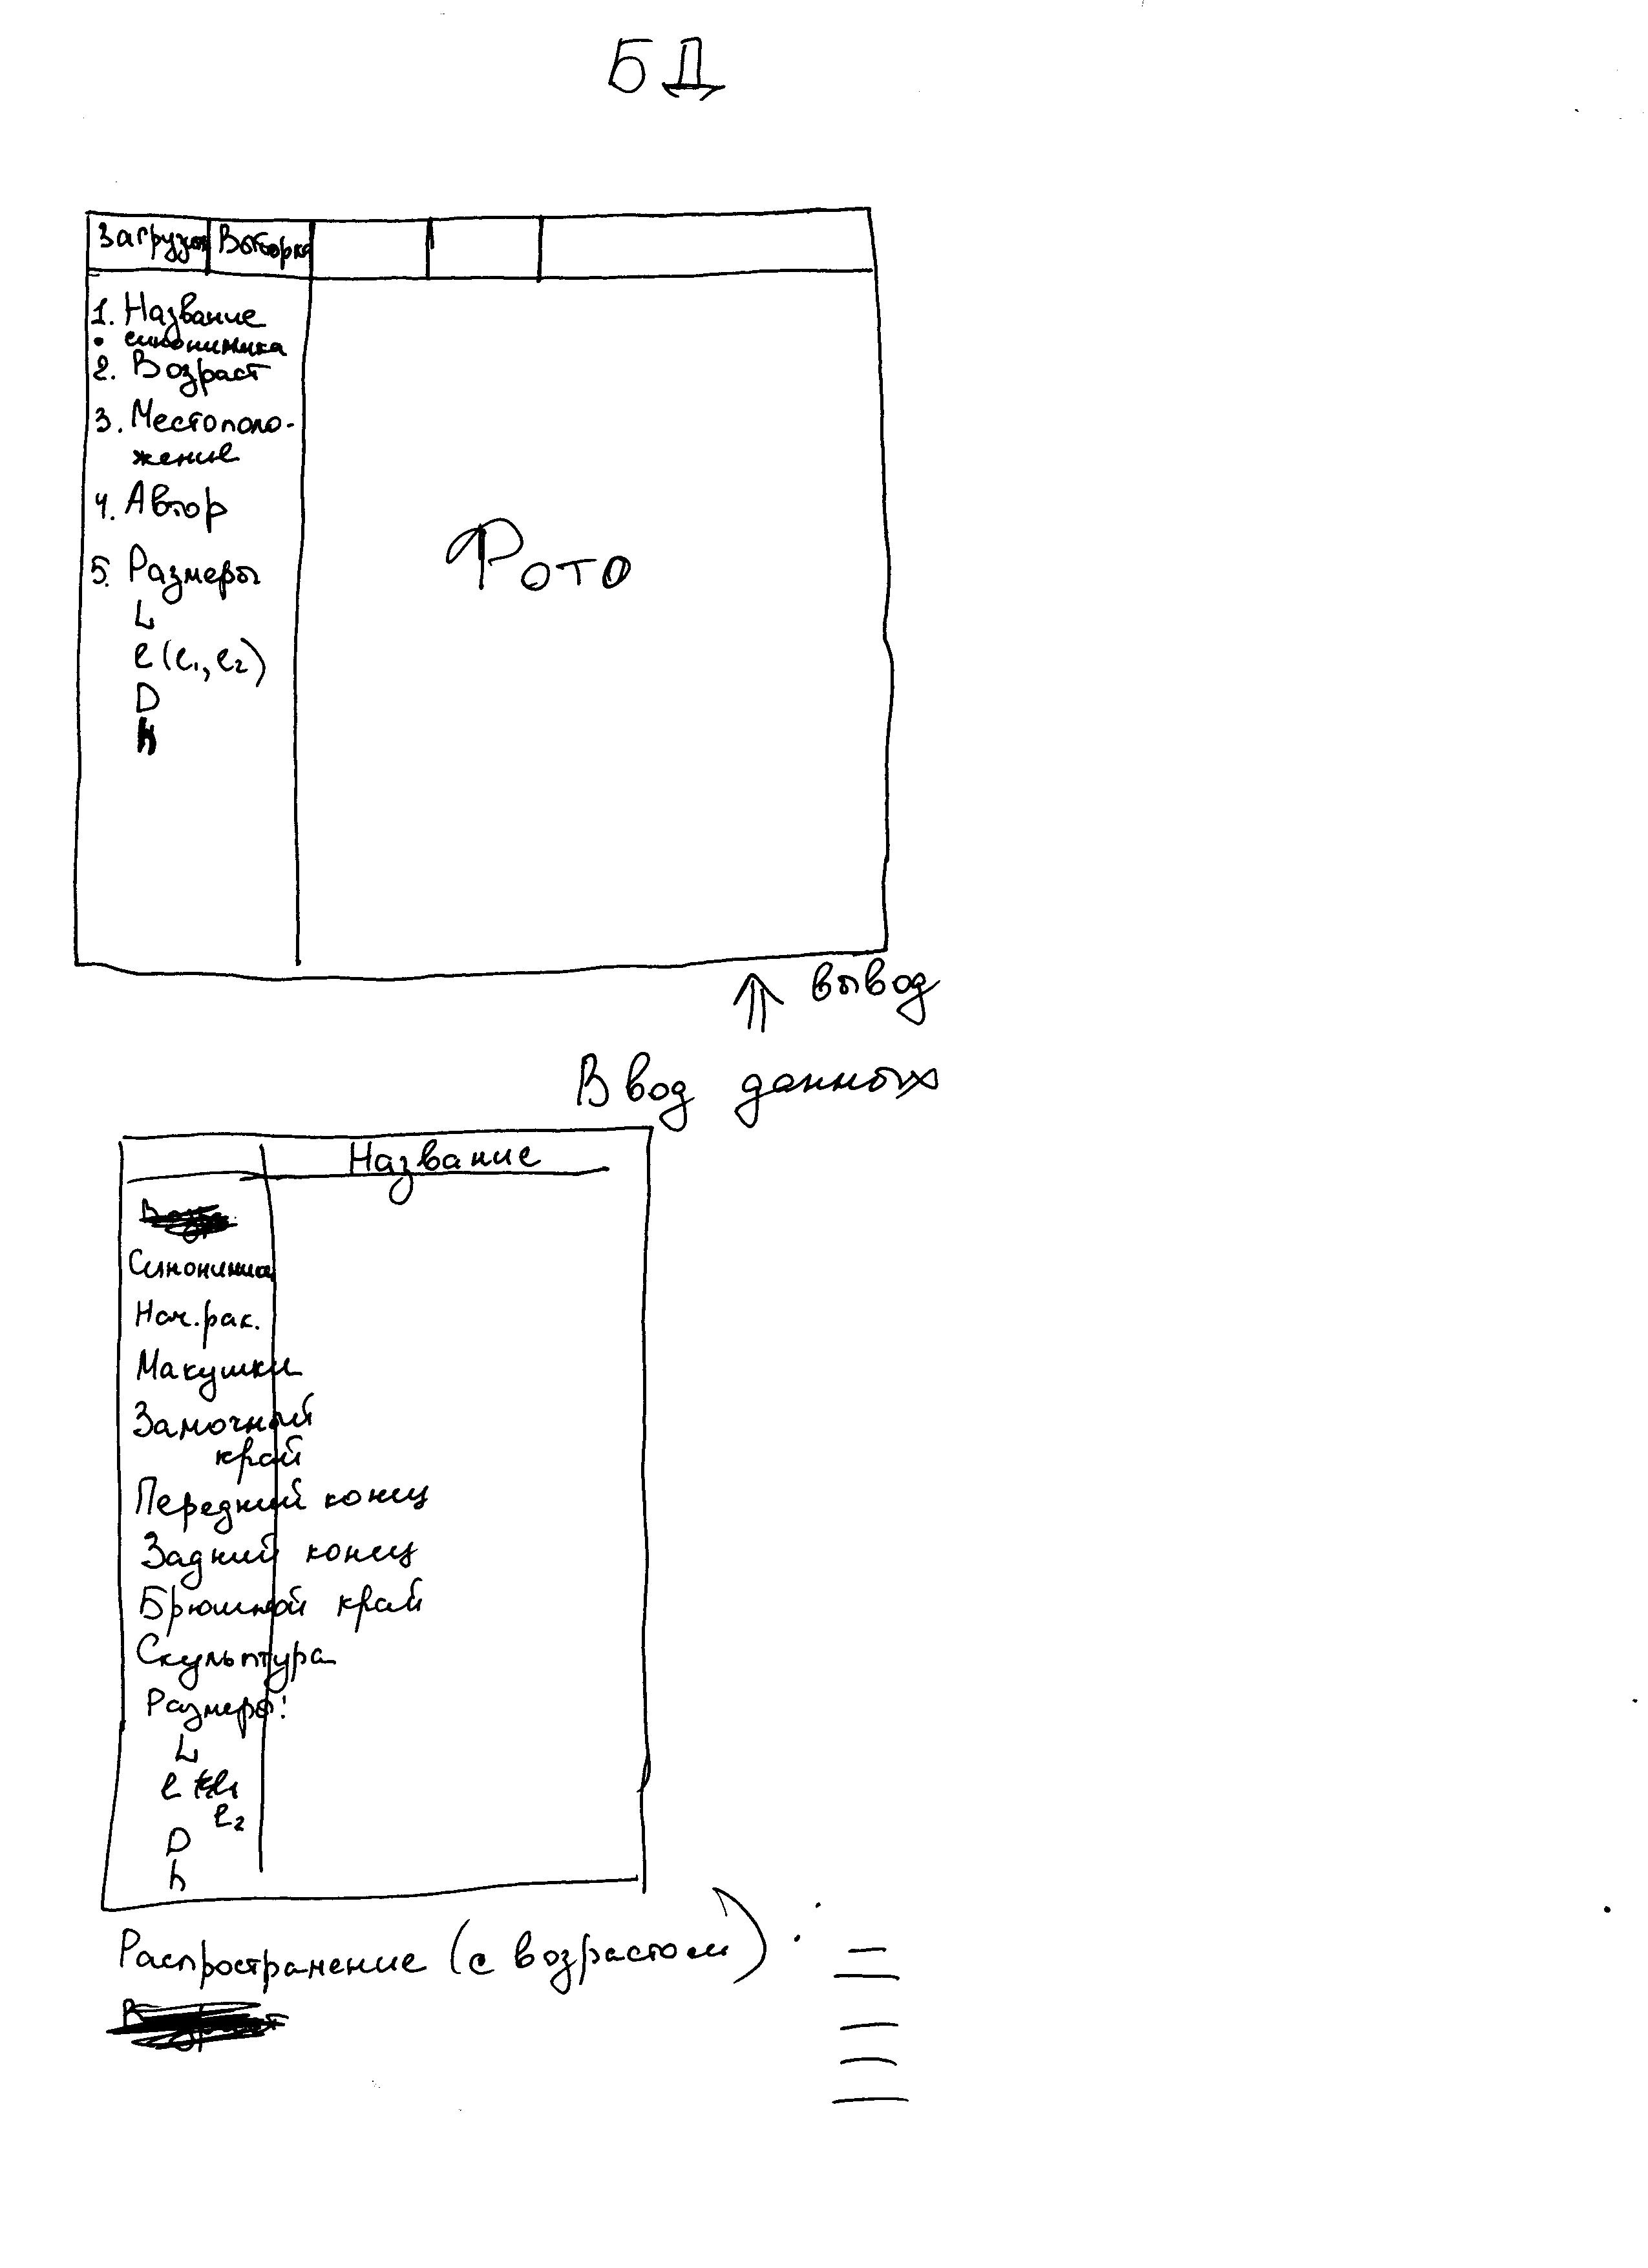 БД
Загрузка Выборка
1. Название
• синонимика
2. Возраст
3. Местополо-
жение
4. Автор
5. Размеры
L
l (l₁, l₂)
D
h
Фото
вывод
Ввод данных
Название
Синонимика
Нач. рак.
Макушки
Замочный
край
Передний конец
Задний конец
Брюшной край
Скульптура
Размеры:
L
l l₁
l₂
D
h
Распространение (с возрастом)